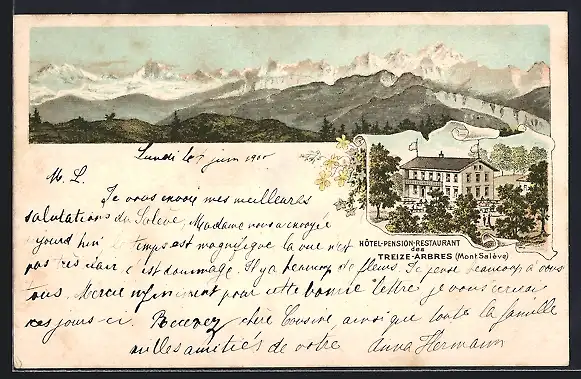 Lundi le juin 1900
M. L.
Je vous envoie mes meilleures
salutations du Salève, Madame nous a envoyé
jourd'hui le temps est magnifique la vue n'est
pas très clair c'est dommage. Il y a beaucoup de fleurs. Je pense beaucoup à vous
tous. Merci infiniment pour cette bonne lettre je vous écrirai
ces jours-ci. Recevez chère Cousine, ainsi que toute la famille
milles amitiés de votre Anna Hermann
HÔTEL-PENSION-RESTAURANT
des
TREIZE-ARBRES (Mont Salève)